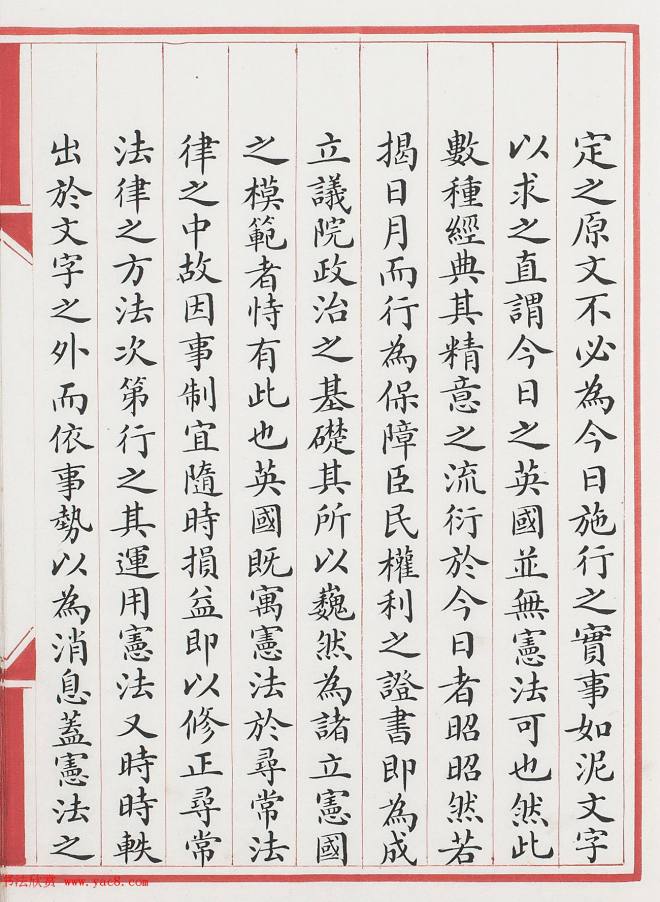 定之原文不必為今日施行之實事如泥文字
以求之直謂今日之英國並無憲法可也然此
數種經典其精意之流衍於今日者昭昭然若
揭日月而行為保障臣民權利之證書即為成
立議院政治之基礎其所以巍然為諸立憲國
之模範者恃有此也英國既寓憲法於尋常法
律之中故因事制宜隨時損益即以修正尋常
法律之方法次第行之其運用憲法又時時軼
出於文字之外而依事勢以為消息蓋憲法之
书法欣赏 www.yac8.com